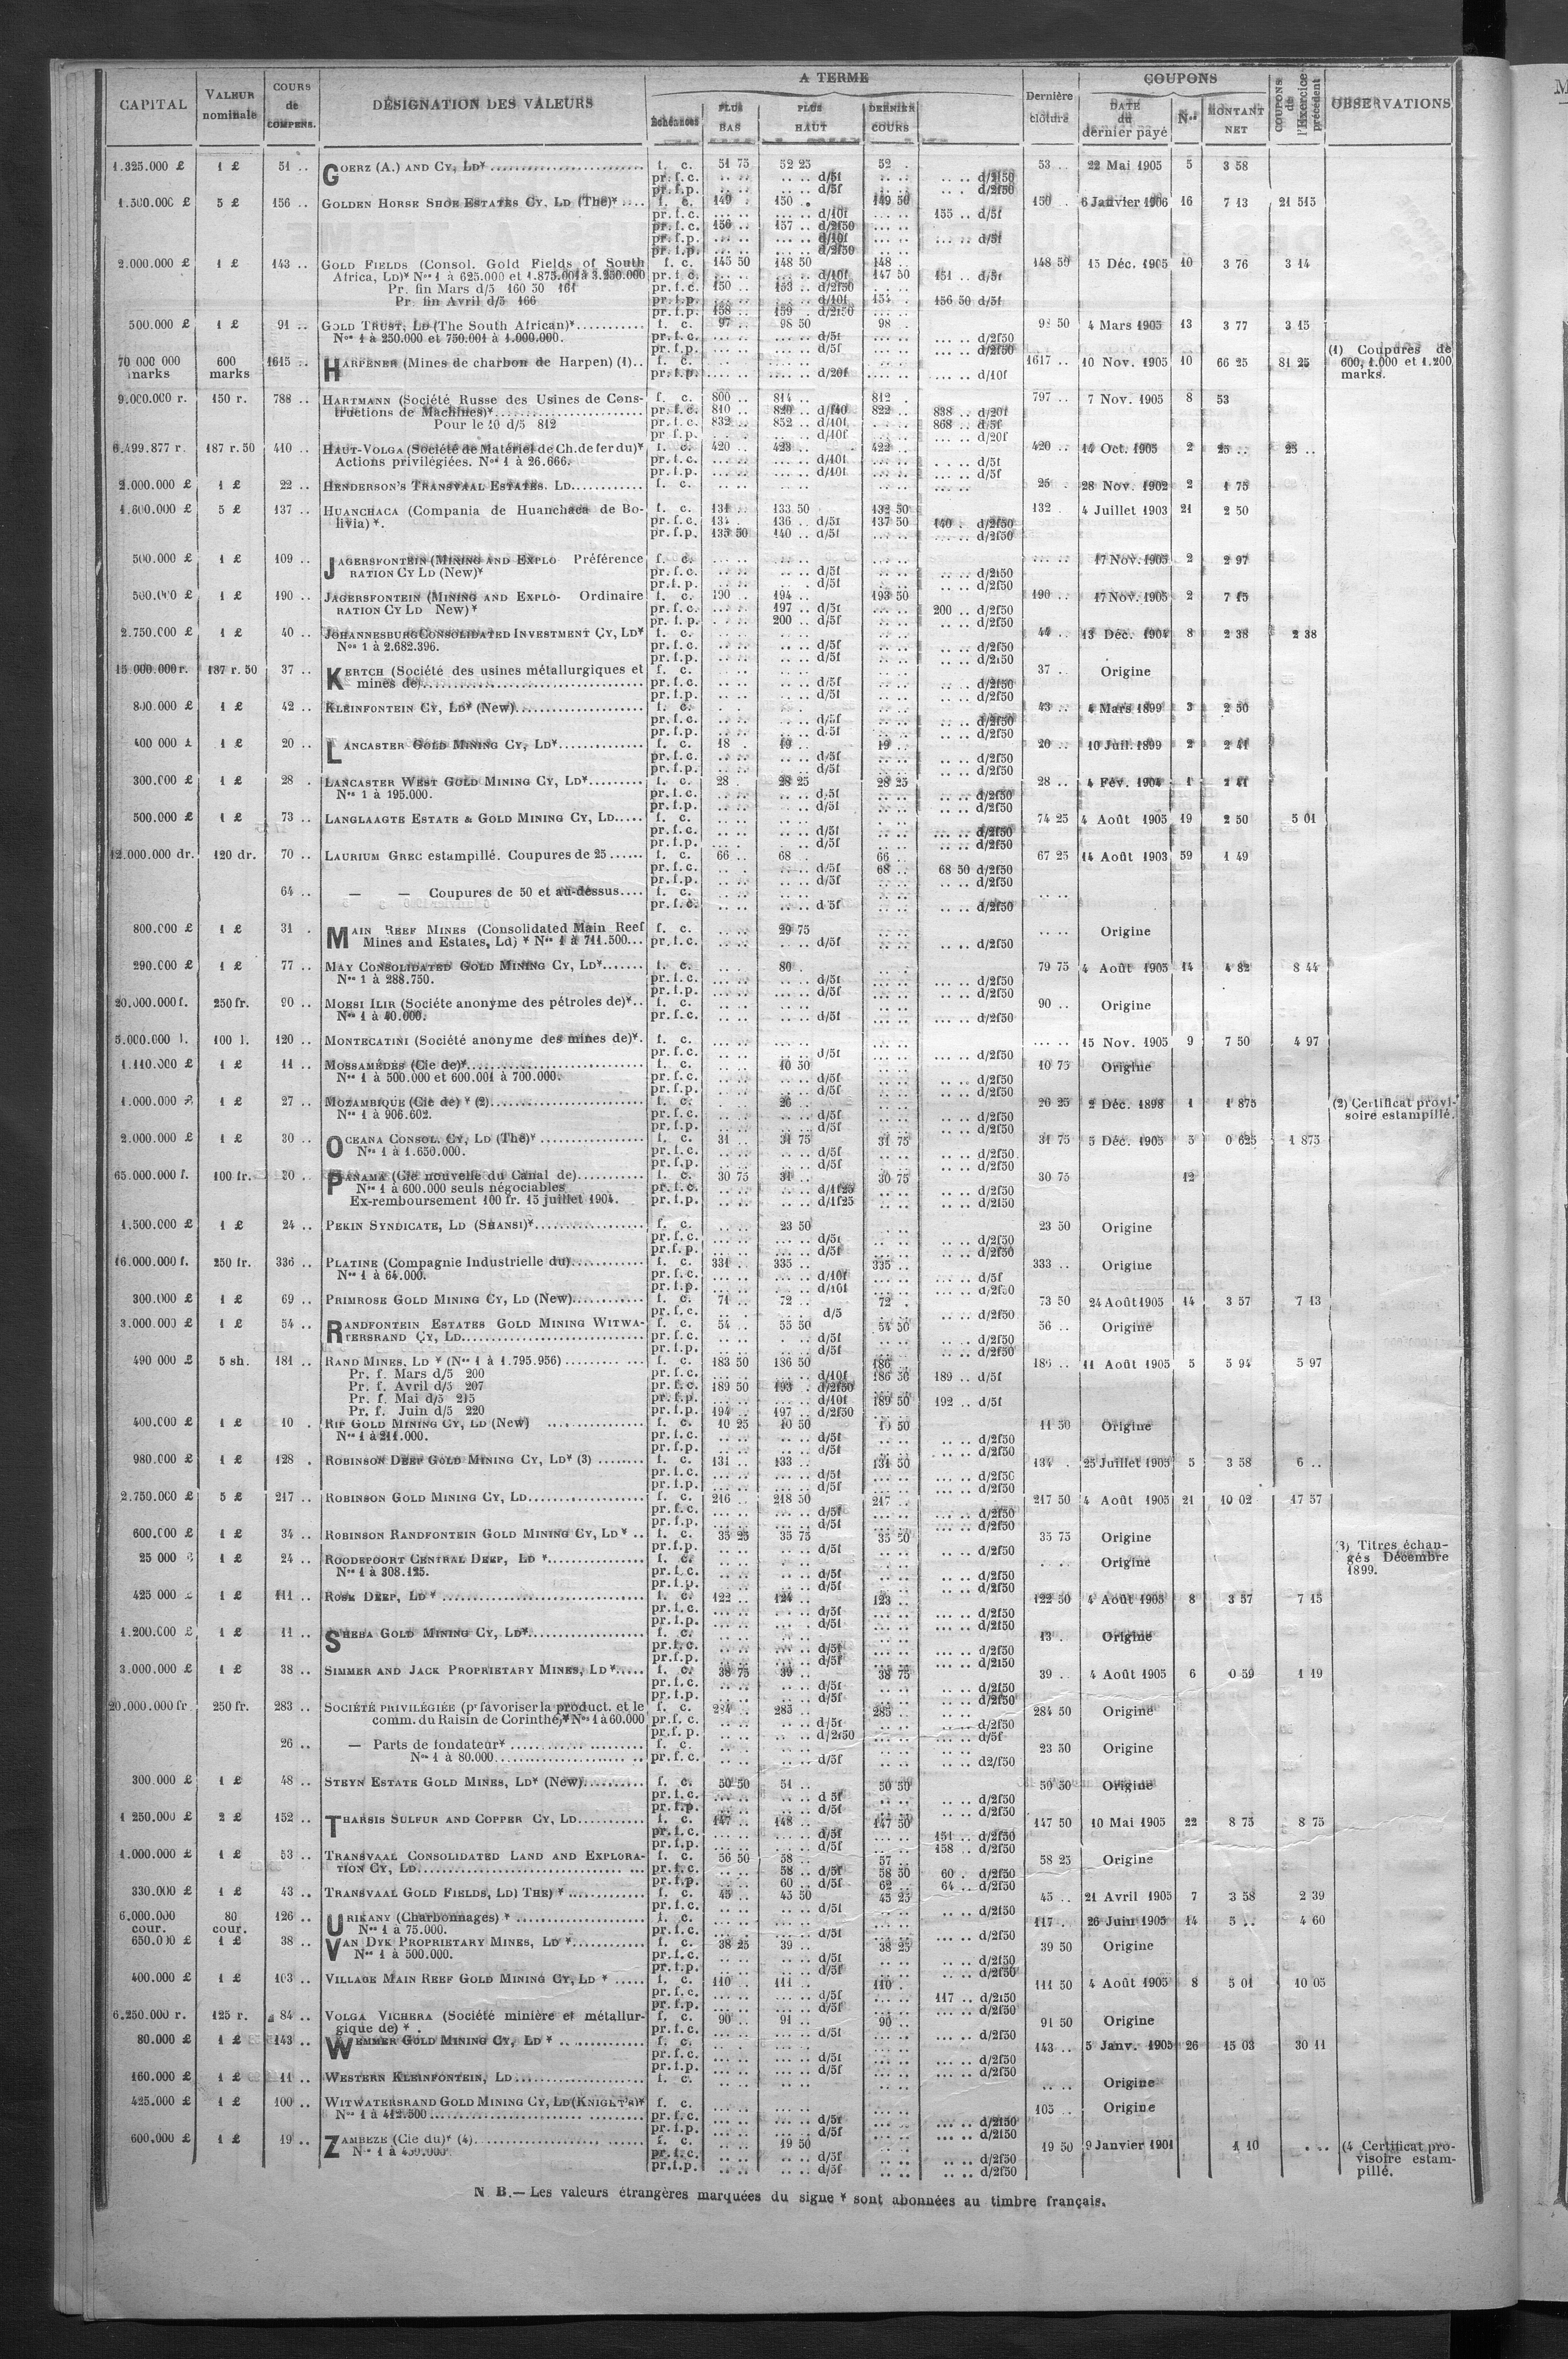 CAPITAL VALEUR nominale COURS de COMPENS. DÉSIGNATION DES VALEURS A TERME Échéances PLUS BAS PLUS HAUT DERNIER COURS Dernière clôture COUPONS DATE du dernier payé Nos MONTANT NET COUPONS de l'Exercice précédent OBSERVATIONS
1.325.000 £ 1 £ 51 .. GOERZ (A.) AND CY, LD* f. c. 51 75 52 25 52 . 53 .. 22 Mai 1905 5 3 58
pr. f. c. .. .. .. .. d/5f .. .. .. .. d/2f50
pr. f. p. .. .. .. .. d/5f .. .. .. .. d/2f50
1.500.000 £ 5 £ 156 .. GOLDEN HORSE SHOE ESTATES CY, LD (The)* .... f. c. 149 . 150 . 149 50 150 .. 6 Janvier 1906 16 7 13 21 515
pr. f. c. ... .. ... .. d/10f ... .. 155 .. d/5f
pr. f. c. 156 .. 157 .. d/2f50 ... ..
pr. f. p. ... .. ... .. d/10f ... .. ... .. d/5f
pr. f. p. ... .. ... .. d/2f50
2.000.000 £ 1 £ 143 .. GOLD FIELDS (Consol. Gold Fields of South f. c. 145 50 148 50 148 .. 148 50 15 Déc. 1905 10 3 76 3 14
Africa, LD)* Nos 1 à 625.000 et 1.875.001 à 3.250.000 pr. f. c. ... .. ... .. d/10f 147 50 151 .. d/5f
Pr. fin Mars d/5 160 50 161 pr. f. c. 150 .. 153 .. d/2f50
Pr. fin Avril d/5 166 pr. f. p. ... .. ... .. d/10f 154 . 156 50 d/5f
pr. f. p. 158 .. 159 . d/2f50
500.000 £ 1 £ 91 .. GOLD TRUST, LD (The South African)* f. c. 97 .. 98 50 98 . 98 50 4 Mars 1905 13 3 77 3 15
Nos 1 à 250.000 et 750.001 à 1.000.000. pr. f. c. .. .. .. .. d/5f .. .. d/2f50
pr. f. p. .. .. .. .. d/5f .. .. d/2f50
70 000 000 marks 600 marks 1615 .. HARPENER (Mines de charbon de Harpen) (1).. f. c. 1617 .. 10 Nov. 1905 10 66 25 81 25 (1) Coupures de
pr. f. p. d/20f d/10f 600, 1.000 et 1.200
marks.
9.000.000 r. 150 r. 788 .. HARTMANN (Société Russe des Usines de Cons- f. c. 800 .. 814 .. 812 . 797 .. 7 Nov. 1905 8 53
tructions de Machines)* pr. f. c. 810 .. 820 .. d/f40 822 .. 838 .. d/20f
Pour le 10 d/5 812 pr. f. c. 832 .. 852 .. d/10f 868 .. d/5f
pr f. p. d/10f d/20f
6.499.877 r. 187 r. 50 410 .. HAUT-VOLGA (Société de Matériel de Ch. de fer du)* f. c. 420 .. 423 .. 422 .. 420 .. 14 Oct. 1905 2 25 .. 25 ..
Actions privilégiées. Nos 1 à 26.666. pr. f. c. d/10f d/5f
pr. f. p. d/10f d/5f
2.000.000 £ 1 £ 22 .. HENDERSON'S TRANSVAAL ESTATES. LD f. c. 25 . 28 Nov. 1902 2 1 75
1.600.000 £ 5 £ 137 .. HUANCHACA (Compania de Huanchaca de Bo- f. c. 131 .. 133 50 132 50 132 . 4 Juillet 1903 21 2 50
livia) *. pr. f. c. 134 . 136 .. d/5f 137 50 140 . d/2f50
pr. f. p. 135 50 140 .. d/5f d/2f50
500.000 £ 1 £ 109 .. JAGERSFONTEIN (MINING AND EXPLO Préférence f. c. 17 Nov. 1905 2 2 97
RATION CY LD (New)* pr. f. c. d/5f d/2f50
pr. f. p. d/5f d/2f50
500.000 £ 1 £ 190 .. JAGERSFONTEIN (MINING AND EXPLO- Ordinaire f. c. 190 .. 194 .. 193 50 190 .. 17 Nov. 1905 2 7 15
RATION CY LD New) * pr. f. c. 197 .. d/5f 200 .. d/2f50
pr. f. p. 200 .. d/5f d/2f50
2.750.000 £ 1 £ 40 .. JOHANNESBURG CONSOLIDATED INVESTMENT CY, LD* f. c. 44 .. 13 Déc. 1904 8 2 38 2 38
Nos 1 à 2.682.396. pr. f. c. d/5f d/2f50
pr. f. p. d/5f d/2f50
15 000.000 r. 187 r. 50 37 .. KERTCH (Société des usines métallurgiques et f. c. 37 .. Origine
mines de) pr. f. c. d/5f d/2f50
pr. f. p. d/5f d/2f50
800.000 £ 1 £ 42 .. KLEINFONTEIN CY, LD* (New) f. c. 43 .. 4 Mars 1899 3 2 50
pr. f. c. d/5f d/2f50
pr. f. p. d/5f d/2f50
400 000 £ 1 £ 20 .. LANCASTER GOLD MINING CY, LD* f. c. 18 . 19 .. 19 .. 20 .. 10 Juil. 1899 2 2 41
pr. f. c. d/5f d/2f50
pr. f. p. d/5f d/2f50
300.000 £ 1 £ 28 . LANCASTER WEST GOLD MINING CY, LD* f. c. 28 . 28 25 28 25 28 .. 4 Fév. 1904 1 2 41
Nos 1 à 195.000. pr. f. c. d/5f d/2f50
pr. f. p. d/5f d/2f50
500.000 £ 1 £ 73 .. LANGLAAGTE ESTATE & GOLD MINING CY, LD f. c. 74 25 4 Août 1905 19 2 50 5 01
pr. f. c. d/5f d/2f50
pr. f. p. d/5f d/2f50
12.000.000 dr. 120 dr. 70 .. LAURIUM GREC estampillé. Coupures de 25 f. c. 66 .. 68 . 66 .. 67 25 14 Août 1903 59 1 49
pr. f. c. d/5f 68 .. 68 50 d/2f50
pr. f. p. d/5f d/2f50
64 .. — — Coupures de 50 et au-dessus f. c.
pr. f. c. d/5f d/2f50
800.000 £ 1 £ 31 . MAIN REEF MINES (Consolidated Main Reef f. c. 29 75 Origine
Mines and Estates, Ld) * Nos 1 à 711.500 pr. f. c. d/5f d/2f50
290.000 £ 1 £ 77 .. MAY CONSOLIDATED GOLD MINING CY, LD* f. c. 80 . 79 75 4 Août 1905 14 4 82 8 44
Nos 1 à 288.750. pr. f. c. d/5f d/2f50
pr. f. p. d/5f d/2f50
20.000.000 f. 250 fr. 90 .. MOESI ILIR (Sociéte anonyme des pétroles de)* f. c. 90 .. Origine
Nos 1 à 40.000. pr. f. c. d/5f d/2f50
5.000.000 l. 100 l. 120 .. MONTECATINI (Société anonyme des mines de)* f. c. 15 Nov. 1905 9 7 50 4 97
pr. f. c. d/5f d/2f50
1.110.000 £ 1 £ 11 .. MOSSAMÉDÈS (Cie de)* f. c. 10 50 10 75 Origine
Nos 1 à 500.000 et 600.001 à 700.000. pr. f. c. d/5f d/2f50
pr. f. p. d/5f d/2f50
1.000.000 £ 1 £ 27 .. MOZAMBIQUE (Cie de) * (2) f. c. 26 .. 26 25 2 Déc. 1898 1 1 875 (2) Certificat provi-
Nos 1 à 906.602. pr. f. c. d/5f d/2f50 soire estampillé.
pr. f. p. d/5f d/2f50
2.000.000 £ 1 £ 30 .. OCEANA CONSOL. CY, LD (The)* f. c. 31 .. 31 75 31 75 31 75 5 Déc. 1905 5 0 625 1 875
Nos 1 à 1.650.000. pr. f. c. d/5f d/2f50
pr. f. p. d/5f d/2f50
65.000.000 f. 100 fr. 30 .. PANAMA (Cie nouvelle du Canal de) f. c. 30 75 31 .. 30 75 30 75 12
Nos 1 à 600.000 seuls négociables pr. f. c. d/1f25 d/2f50
Ex-remboursement 100 fr. 15 juillet 1904. pr. f. p. d/1f25 d/2f50
1.500.000 £ 1 £ 24 .. PEKIN SYNDICATE, LD (SHANSI)* f. c. 23 50 23 50 Origine
pr. f. c. d/5f d/2f50
pr. f. p. d/5f d/2f50
16.000.000 f. 250 fr. 336 .. PLATINE (Compagnie Industrielle du) f. c. 331 .. 335 .. 335 .. 333 .. Origine
Nos 1 à 64.000. pr. f. c. d/10f d/5f
pr. f. p. d/10f d/2f50
300.000 £ 1 £ 69 .. PRIMROSE GOLD MINING CY, LD (New) f. c. 71 .. 72 .. 72 . 73 50 24 Août 1905 14 3 57 7 13
pr. f. c. d/5 d/2f50
3.000.000 £ 1 £ 54 .. RANDFONTEIN ESTATES GOLD MINING WITWA- f. c. 54 .. 55 50 54 50 56 .. Origine
TERSRAND CY, LD pr. f. c. d/5f d/2f50
pr. f. p. d/5f d/2f50
490 000 £ 5 sh. 181 .. RAND MINES, LD * (Nos 1 à 1.795.956) f. c. 183 50 186 50 186 186 .. 11 Août 1905 5 5 94 5 97
Pr. f. Mars d/5 200 pr. f. c. d/10f 186 50 189 .. d/5f
Pr. f. Avril d/5 207 pr. f. c. 189 50 193 . d/2f50
Pr. f. Mai d/5 215 pr. f. p. d/10f 189 50 192 .. d/5f
Pr. f. Juin d/5 220 pr. f. p. 194 .. 197 .. d/2f50
400.000 £ 1 £ 10 . RIP GOLD MINING CY, LD (New) f. c. 10 25 10 50 10 50 11 50 Origine
Nos 1 à 211.000. pr. f. c. d/5f d/2f50
pr. f. p. d/5f d/2f50
980.000 £ 1 £ 128 . ROBINSON DEEP GOLD MINING CY, LD* (3) f. c. 131 .. 133 .. 131 50 134 . 25 Juillet 1905 5 3 58 6 ..
pr. f. c. d/5f d/2f50
pr. f. p. d/5f d/2f50
2.750.000 £ 5 £ 217 .. ROBINSON GOLD MINING CY, LD f. c. 216 .. 218 50 217 .. 217 50 4 Août 1905 21 10 02 17 57
pr. f. c. d/5f d/2f50
pr. f. p. d/5f d/2f50
600.000 £ 1 £ 34 .. ROBINSON RANDFONTEIN GOLD MINING CY, LD * .. f. c. 35 25 35 75 35 50 35 75 Origine
pr. f. p. d/5f d/2f50 (3) Titres échan-
25 000 1 £ 24 .. ROODEPOORT CENTRAL DEEP, LD * f. c. Origine gés Décembre
Nos 1 à 308.125. pr. f. c. d/5f d/2f50 1899.
pr. f. p. d/5f d/2f50
425 000 £ 1 £ 111 .. ROSE DEEP, LD * f. c. 122 .. 124 .. 123 .. 122 50 4 Août 1905 8 3 57 7 15
pr. f. c. d/5f d/2f50
pr. f. p. d/5f d/2f50
1.200.000 £ 1 £ 11 .. SHEBA GOLD MINING CY, LD* f. c. 13 . Origine
pr. f. c. d/5f d/2f50
pr. f. p. d/5f d/2f50
3.000.000 £ 1 £ 38 .. SIMMER AND JACK PROPRIETARY MINES, LD * f. c. 38 75 39 .. 38 75 39 .. 4 Août 1905 6 0 59 1 19
pr. f. c. d/5f d/2f50
pr. f. p. d/5f d/2f50
20.000.000 fr 250 fr. 283 .. SOCIÉTÉ PRIVILÉGIÉE (pr favoriser la product. et le f. c. 284 .. 285 .. 285 .. 284 50 Origine
comm. du Raisin de Corinthe)* Nos 1 à 60.000 pr. f. c. d/5f d/2f50
pr. f. p. d/2f50 d/5f
26 .. — Parts de fondateur* f. c. 23 50 Origine
Nos 1 à 80.000 pr. f. c. d/5f d2/f50
300.000 £ 1 £ 48 .. STEYN ESTATE GOLD MINES, LD* (New) f. c. 50 50 51 .. 50 50 50 50 Origine
pr. f. c. d 5f d/2f50
pr. f. p. d/5f d/2f50
1 250.000 £ 2 £ 152 .. THARSIS SULFUR AND COPPER CY, LD f. c. 147 .. 148 .. 147 50 147 50 10 Mai 1905 22 8 75 8 75
pr. f. c. d/5f 151 .. d/2f50
pr. f. p. d/5f 158 .. d/2f50
1.000.000 £ 1 £ 53 .. TRANSVAAL CONSOLIDATED LAND AND EXPLORA- f. c. 56 50 58 .. 57 .. 58 25 Origine
TION CY, LD pr. f. c. 58 .. d/5f 58 50 60 . d/2f50
pr. f. p. 60 .. d/5f 62 .. 64 .. d/2f50
330.000 £ 1 £ 43 .. TRANSVAAL GOLD FIELDS, LD) THE) * f. c. 45 .. 45 50 45 25 45 .. 21 Avril 1905 7 3 58 2 39
pr. f. c. d/5f d/2f50
6.000.000 cour. 80 cour. 126 .. URIKANY (Charbonnages) * f. c. 117 . 26 Juin 1905 14 5 .. 4 60
Nos 1 à 75.000. pr. f. c. d/5f d/2f50
650.000 £ 1 £ 38 .. VAN DYK PROPRIETARY MINES, LD * f. c. 38 25 39 .. 38 25 39 50 Origine
Nos 1 à 500.000. pr. f. c. d/5f d/2f50
pr. f. p. d/5f d/2f50
400.000 £ 1 £ 103 .. VILLAGE MAIN REEF GOLD MINING CY, LD * f. c. 110 .. 111 .. 110 . 111 50 4 Août 1905 8 5 01 10 05
pr. f. c. d/5f 117 .. d/2f50
pr. f. p. d/5f d/2f50
6.250.000 r. 125 r. 84 .. VOLGA VICHERA (Société minière et métallur- f. c. 90 .. 91 .. 90 .. 91 50 Origine
gique de) * . pr. f. c. d/5f d/2f50
80.000 £ 1 £ 143 .. WEMMER GOLD MINING CY, LD * f. c. 143 .. 5 Janv. 1905 26 15 03 30 11
pr. f. c. d/5f d/2f50
pr. f. p. d/5f d/2f50
160.000 £ 1 £ 11 .. WESTERN KLEINFONTEIN, LD f. c. Origine
425.000 £ 1 £ 100 .. WITWATERSRAND GOLD MINING CY, LD (KNIGHT'S)* f. c. 105 .. Origine
Nos 1 à 412.500 pr. f. c. d/5f d/2f50
pr. f. p. d/5f d/2f50
600.000 £ 1 £ 19 .. ZAMBEZE (Cie du)* (4) f. c. 19 50 19 50 9 Janvier 1901 1 10 (4 Certificat pro-
Nos 1 à pr. f. c. d/5f d/2f50 visoire estam-
pr. f. p. d/5f d/2f50 pillé.
N B.— Les valeurs étrangères marquées du signe * sont abonnées au timbre français.